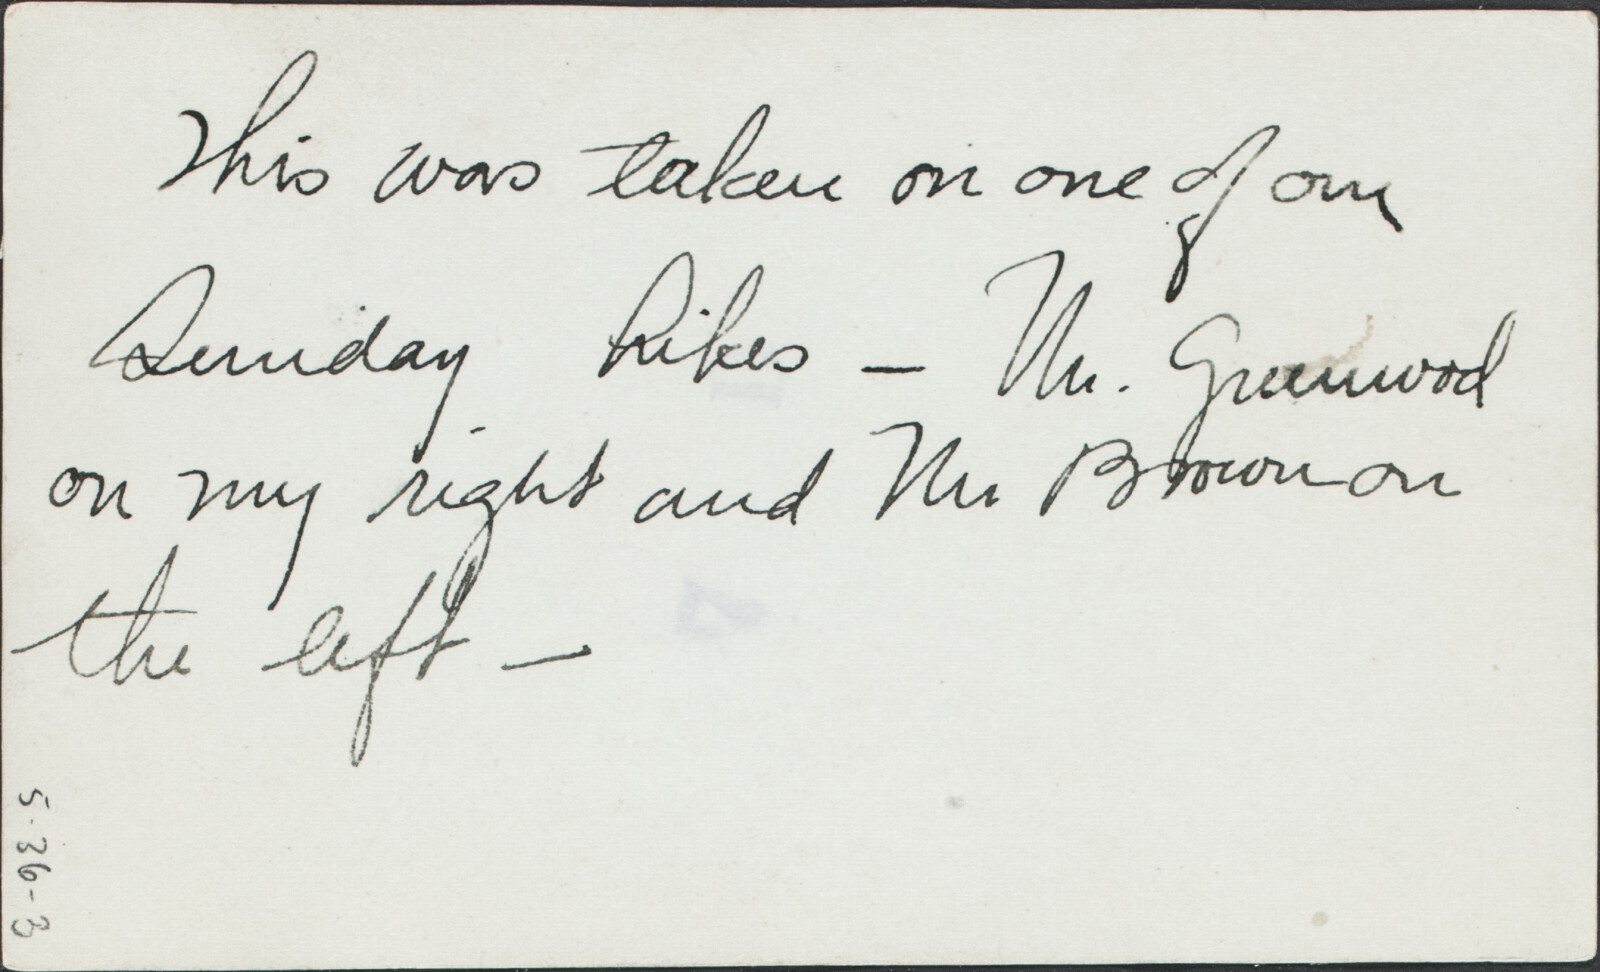 This was taken on one of our
Sunday hikes — Mr. Greenwood
on my right and Mr Brown on
the left —
5-36-3